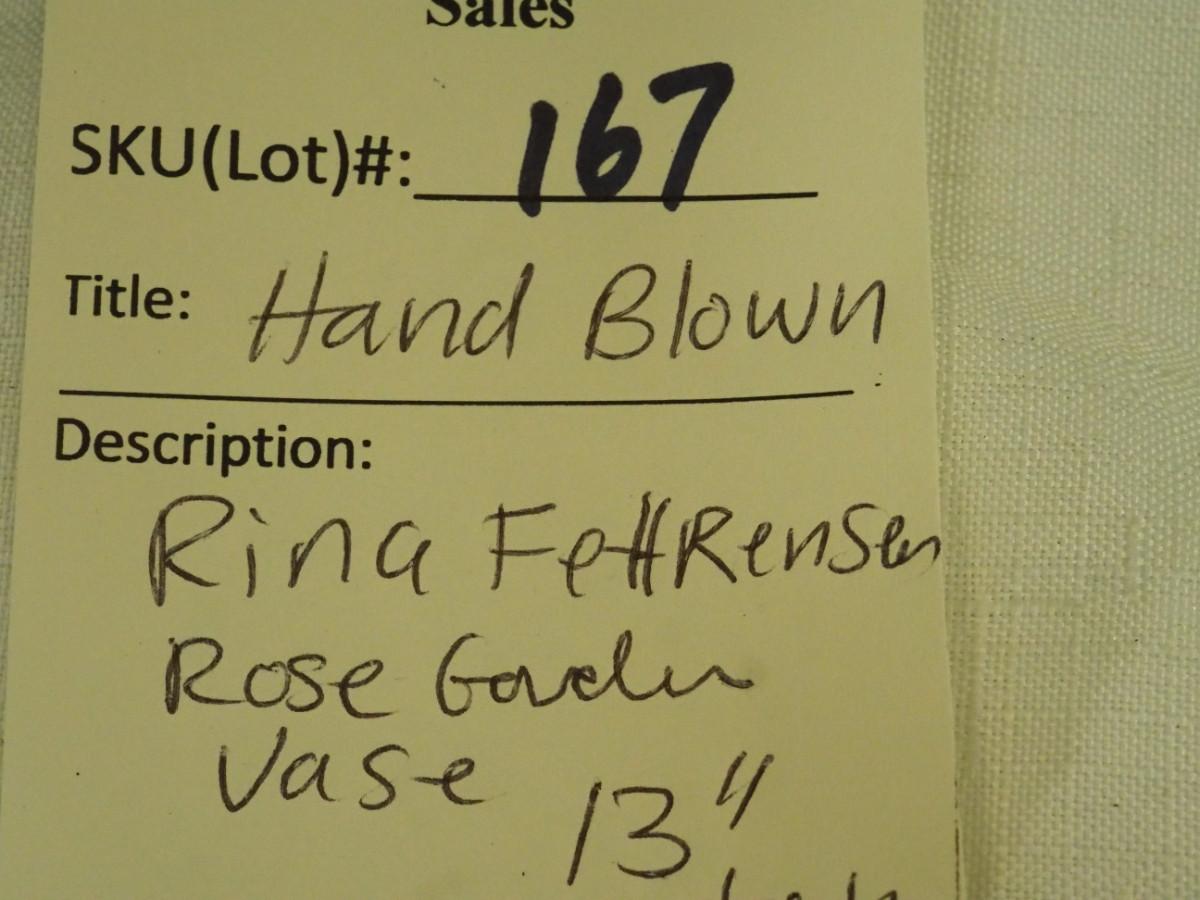 Sales
SKU(Lot)#: 167
Title: Hand Blown
Description:
Rina FettRensen
Rose Garden
Vase 13"